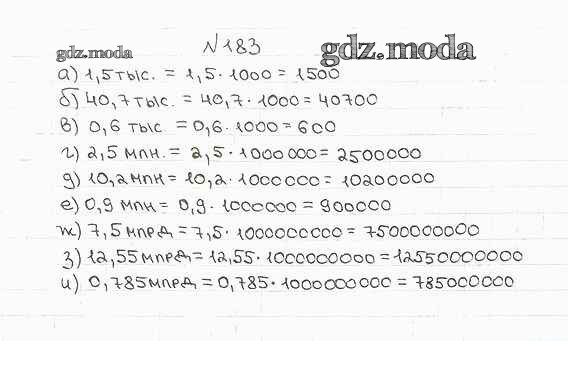 gdz.moda №183 gdz.moda
а) 1,5 тыс. = 1,5·1000 = 1500
б) 40,7 тыс. = 40,7·1000 = 40700
в) 0,6 тыс = 0,6·1000 = 600
г) 2,5 млн. = 2,5·1000000 = 2500000
д) 10,2 млн = 10,2·1000000 = 10200000
е) 0,9 млн = 0,9·1000000 = 900000
ж) 7,5 млрд = 7,5·1000000000 = 7500000000
з) 12,55 млрд = 12,55·1000000000 = 12550000000
и) 0,785 млрд = 0,785·1000000000 = 785000000